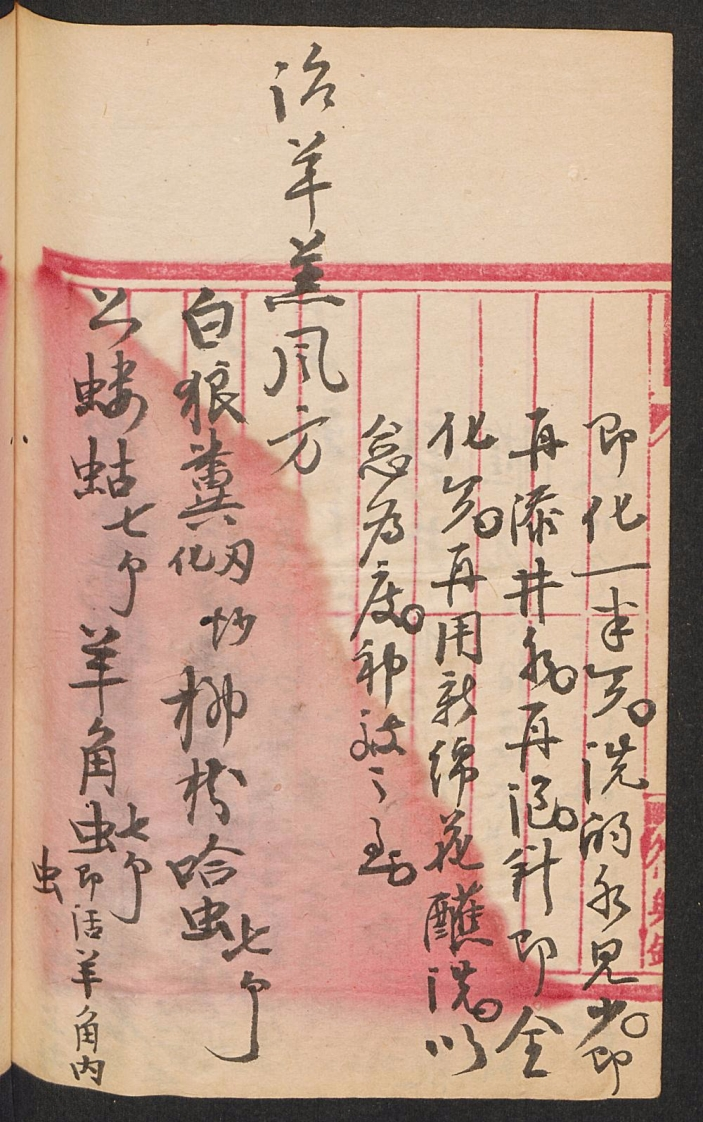 即化一半矣。洗的水見少。即
再添井水。再泡。針即全
化矣。再用新綿花蘸洗。以
愈為度。神效之至。
治羊羔風方
白狼糞化匁炒 柳樹哈虫七个
公螻蛄七个 羊角虫七个即活羊角内
虫